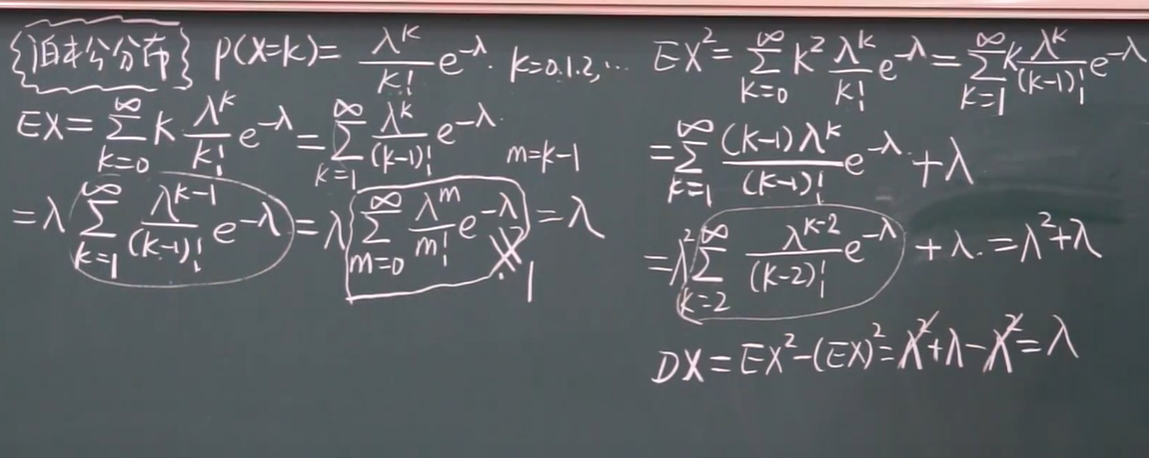 泊松分布 P(X=k)= \frac{λ^k}{k!} e^{-λ}. k=0.1.2,…
EX= \sum_{k=0}^{∞} k \frac{λ^k}{k!} e^{-λ} = \sum_{k=1}^{∞} \frac{λ^k}{(k-1)!} e^{-λ} m=k-1
=λ \sum_{k=1}^{∞} \frac{λ^{k-1}}{(k-1)!} e^{-λ} = λ \sum_{m=0}^{∞} \frac{λ^m}{m!} e^{-λ} = λ
1
EX^2 = \sum_{k=0}^{∞} k^2 \frac{λ^k}{k!} e^{-λ} = \sum_{k=1}^{∞} k \frac{λ^k}{(k-1)!} e^{-λ}
= \sum_{k=1}^{∞} \frac{(k-1)λ^k}{(k-1)!} e^{-λ} + λ
= λ^2 \sum_{k=2}^{∞} \frac{λ^{k-2}}{(k-2)!} e^{-λ} + λ. = λ^2+λ
DX = EX^2-(EX)^2 = λ^2+λ-λ^2 = λ